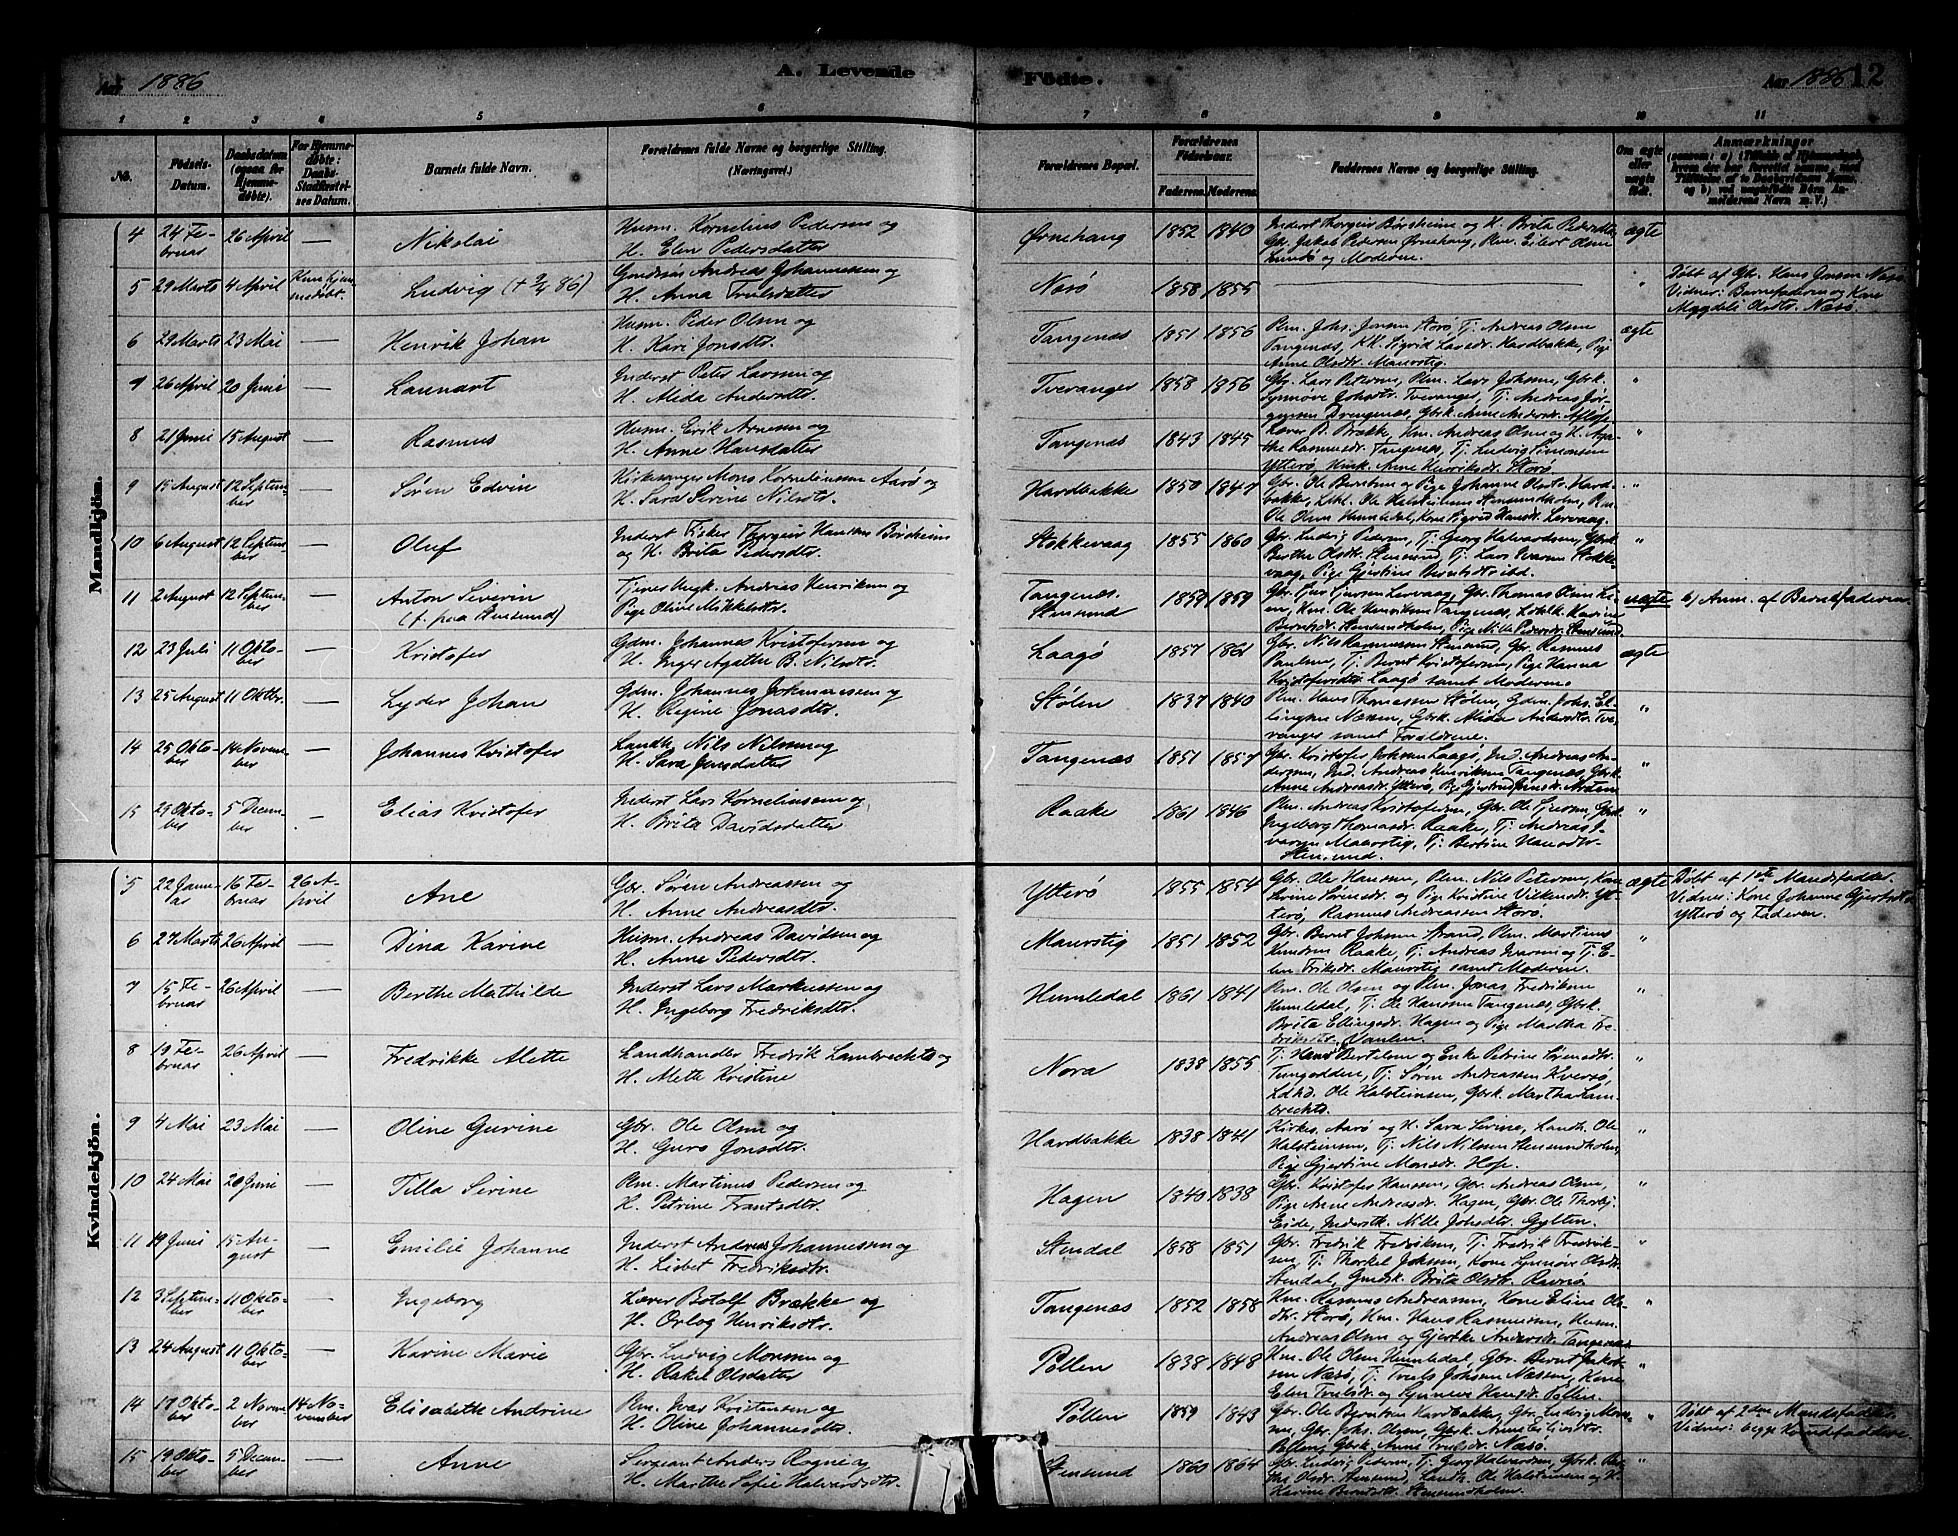 Aar 1886
A. Levende
Fødte.
Aar 1886
12
1 2 3 4 5 6 7 8 9 10 11
No.
Fødsels-Datum.
Daabsdatum (ogsaa for Hjemmedøbte).
For Hjemmedøbte: Daabs-Stadfæstelses Datum.
Barnets fulde Navn.
Forældrenes fulde Navne og borgerlige Stilling. (Næringsvei.)
Forældrenes Bopæl.
Forældrenes Fødselsaar.
Faderens. Moderens.
Faddernes Navne og borgerlige Stilling.
Om ægte eller uægte født.
Anmærkninger
Mandkjøn.
4 24 Februar 26 April — Nikolai Husm. Kornelius Pedersen og H. Elen Pedersdatter Ørnehaug 1852 1840 Inderst Thorgeir Børsheim og H. Brita Pedersdtr, Gbr. Jakob Pedersen Ørnehaug, Pm. Eilert Olsen Sundø og Moderen. ægte
5 29 Marts 4 April Kun hjemmedøbt. Ludvig (+ 9/4 86) Gaardman Andreas Johannessen og H. Anna Trulsdatter Nasø 1858 1855 — " Døbt af Gbr. Hans Jonsen Nasø. Vidner: Barnefaderen og Kone Magdeli Olsdtr. Næsø.
6 29 Marts 23 Mai — Henrik Johan Husm. Peder Olsen og H. Kari Jonsdtr. Tangenæs 1851 1856 Pm. Johs. Jonsen Storø, Tj. Andreas Olsen Tangenæs, KK. Sigrid Larsdr. Hardbakke, Pige Anne Olsdtr. Maurstig. ægte
7 26 April 20 Juni — Launart Inderst Peter Larsen og H. Alida Andersdtr. Tveranger 1858 1856 Gbr. Lars Petersen, Pm. Lars Johsen, Gbrk. Synnøve Johsdtr. Tveranger, Tj. Andreas Jørgensen Drengenæs, Gbrk. Anne Andersdr. "
8 21 Juni 15 August — Rasmus Husm. Erik Arnesen og H. Anne Hansdatter Tangenæs 1843 1845 Lærer B. Brække, Hm. Andreas Olsen og H. Agathe Rasmusdr. Tangenæs, Tj. Ludvig Simonsen Ytterø, Hmk. Anne Henriksdr. Storø. "
9 15 August 12 September — Søren Edvin Kirkesanger Mons Korneliussen Aarø og H. Sara Serine Nilsdtr. Hardbakke 1850 1847 Gbr. Ole Berntsen og Pige Johanne Olsdtr. Hardbakke, Ldhl. Ole Halsteinsen Stensundholm, Pm. Ole Olsen Humledal, Kone Sigrid Hansdr. Lervaag. "
10 6 August 12 September — Oluf Inderst Fisker Thorgeir Hansen Børsheim og H. Brita Pedersdtr Stokkevaag 1855 1860 Gbr. Ludvig Pedersen, Tj. Georg Halvardsen, Gbrk. Berthe Olsdtr. Stensund, Tj. Lars Ivarsen Stokkevaag, Pige Gjertine Berntsdtr ibd. "
11 2 August 12 September — Anton Severin (f. paa Stensund) Tjener Ungk. Andreas Henriksen og Pige Oline Mikkelsdtr. Tangenæs. Stensund 1859 1859 Gbr. Tjer Tjersen Lervaag, Gbr. Thomas Olsen, Hm. Ole Henriksen Tangenæs, Karine Berntsdr. Stensundholm, Pige Nille Pedersdr. Stensund. uægte b) Anm. af Barnefaderen.
12 23 Juli 11 Oktober — Kristofer Gdm. Johannes Kristofersen og H. Inger Agathe B. Nilsdtr. Laagø 1857 1861 Gbr. Nils Rasmussen Stensund, Gbr. Rasmus Paulsen, Tj. Bernt Kristofersen, Pige Hanna Kristofersdtr Laagø samt Moderen. ægte
13 25 August 11 Oktbr. — Lyder Johan Gdm. Johannes Johannessen og H. Regine Jonasdtr. Stølen 1837 1840 Pm. Hans Thomassen Stølen, Gdm. Johs. Ellingsen Næssen, Gbrk. Alida Andersdtr. Tveranger samt Forældrene. "
14 25 Oktober 14 November — Johannes Kristofer Landh. Nils Nilssen og H. Sara Jensdatter Tangenæs 1851 1857 Gbr. Kristofer Johsen Laagø, Ind. Andreas Andersen, Ind. Andreas Henriksen Tangenæs, Gbrk. Anne Andreasdr. Ytterø, Pige Gjertrud "
15 29 Oktober 5 December — Elias Kristofer Inderst Lars Korneliussen og H. Brita Davidsdatter Raake 1861 1846 Pm. Andreas Kristofersen, Gbr. Ole Tjersen, Gbrk. Ingeborg Thomasdr. Raake, Tj. Andreas Ivarsen Maurstig, Tj. Bertine Hansdtr. Stensund. "
Kvindekjøn.
5 22 Januar 16 Februar 26 April Ane Gbr. Søren Andreassen og H. Anne Andreasdtr. Ytterø 1855 1854 Gbr. Ole Hansen, Pm. Nils Petersen, Kone Serine Sørensdr. og Pige Kristine Vilkensdr. Ytterø, Rasmus Andreassen Storø. ægte Døbt af 1ste Mandsfadder. Vidner: Kone Johanne Gjertsdtr Ytterø og Faderen.
6 27 Marts 26 April — Dina Karine Husm. Andreas Davidsen og H. Anne Pedersdtr. Maurstig 1851 1852 Gbr. Bernt Johsen Strand, Pm. Martinus Knudsen Raake, Tj. Andreas Ivarsen og Tj. Elen Eriksdr. Maurstig samt Moderen. "
7 15 Februar 26 April — Berthe Mathilde Inderst Lars Markussen og H. Ingeborg Fredriksdtr. Humledal 1861 1841 Pm. Ole Olsen og Pm. Jonas Fredriksen Humledal, Tj. Ole Hansen Tangenæs, Gbrk. Brita Ellingsdr. Hagen og Pige Martha Fredriksdtr. "
8 19 Februar 26 April — Fredrikke Alette Landhandler Fredrik Lambrechts og H. Alette Kristine Nora 1838 1855 Tj. Hans Bertelsen og Enke Petrine Sørensdtr. Tungodden, Tj. Søren Andreassen Kversø, Ldhd. Ole Halsteinsen, Gbrk. Martha Lambrechts. "
9 4 Mai 23 Mai — Oline Gurine Gbr. Ole Olsen og H. Guro Jonsdtr. Hardbakke 1838 1841 Kirkes. Aarø og H. Sara Serine, Landh. Ole Halsteinsen, Tj. Nils Nilsen Stensundholm, Pige Gjertine Monsdr. Hope. "
10 24 Mai 20 Juni — Tilla Serine Pm. Martinus Pedersen og H. Petrine Frantsdtr. Hagen 1840 1838 Gbr. Kristofer Hanssen, Gbr. Andreas Olsen, Pige Anne Andreasdr. Hagen, Gbr. Ole Thorbj. Eide, Inderstk. Nille Johsdtr. Gylten. "
11 19 Juni 15 August — Emilie Johanne Inderst Andreas Johannessen og H. Lisbet Fredriksdtr. Stendal 1858 1851 Gbr. Fredrik Fredriksen, Tj. Fredrik Fredriksen, Tj. Thorkel Johsen, Kone Synnøve Olsdtr. Stendal, Gmdsk. Brita Olsdtr. Ravnø. "
12 3 September 11 Oktober — Ingeborg Lærer Botolf Brække og H. Orlog Henriksdtr. Tangenæs 1852 1858 Hm. Rasmus Andreassen, Kone Eline Olsdtr. Storø, Hm. Hans Rasmussen, Husm. Andreas Olsen og Gjertke Andersdr. Tangenæs. "
13 24 August 11 Oktober — Karine Marie Gbr. Ludvig Monsen og H. Rakel Olsdatter Pollen 1838 1848 Hm. Ole Olsen Humledal, Gbr. Bernt Jakobsen Næsø, Tj. Truls Johsen Næssen, Kone Elen Trulsdr. og Synneve Hansdr. Pollen. "
14 17 Oktober 2 November 14 November Elisabeth Andrine Pm. Ivar Kristensen og H. Oline Johannesdtr. Pollen 1859 1843 Gbr. Ole Berntsen Hardbakke, Gbr. Ludvig Monsen, Gbr. Johs. Olsen, Gbrk. Anne Pollen, Gbrk. Anne Trulsdr. Næsø. " Døbt af 2den Mandsfadder. Vidner: begge Kvindefaddere.
15 19 Oktober 5 December — Anne Sergeant Anders Rogne og H. Marthe Sofie Halvardsdtr. Stensund 1860 1864 Gbr. Ludvig Petersen, Tj. Georg Halvardsen, Gbrk. Berthe Olsdr. Stensund, Landh. Ole Halsteinsen og H. Karine Berntsdtr. Stensundholm. "